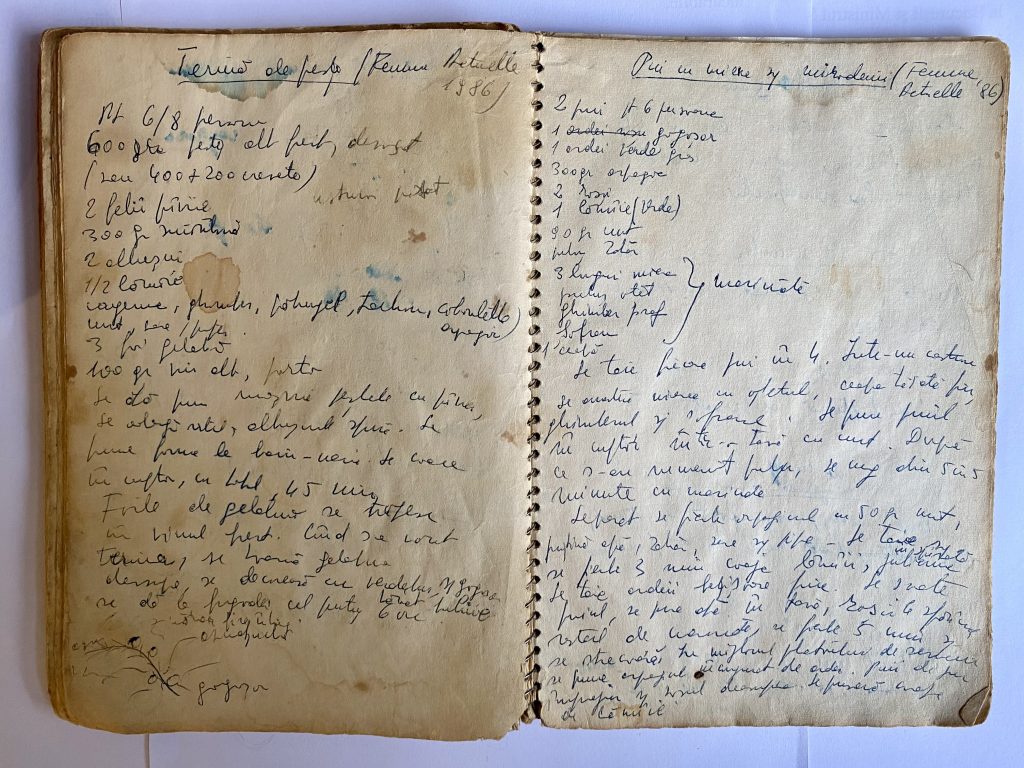 Terină de pește (Femme Actuelle
1986)
Pt 6/8 persoane
600 gr pește alb fiert, dezosat
(sau 400 + 200 crevete)
usturoi pisat
2 felii pâine
300 gr smântână
2 albușuri
1/2 lămâie
cayenne, ghimbir, pătrunjel,
unt, sare/piper
3 foi gelatină
100 gr vin alb, porto
Se dă prin mașină peștele cu pâinea,
se adaugă restul, albușul spumă. Se
pune forma la bain-marie. Se coace
în cuptor, cu totul 45 min.
Foile de gelatină se topesc
în vinul fiert. Când s-a răcit
terina, se toarnă gelatina
deasupra, se decorează cu verdeață și gogoșar
se dă la frigider cel puțin 6 ore.
gogoșar
Pui cu miere și mirodenii (Femme
Actuelle '86)
2 pui pt 6 persoane
1 ardei roșu gogoșar
1 ardei verde gras
300 gr arpagic
2 roșii
1 lămâie (verde)
90 gr unt
puțin zahăr
3 linguri miere
puțin oțet
ghimbir praf
Șofran
marinată
1 ceapă
Se taie fiecare pui în 4. Într-un castron
se amestecă mierea cu oțetul, ceapa tăiată fin,
ghimberul și șofranul. Se pune puiul
în cuptor într-o tavă cu unt. După
ce s-au rumenit puțin, se ung din 5 în 5
minute cu marinada
Separat se fierbe arpagicul cu 50 gr unt,
puțină apă, zahăr, sare și piper. Se taie
se fierbe 3 min coaja lămâii,
Se taie ardeii fin. Se scoate
puiul, se pune apă în tavă, roșiile
restul de marinată, se fierbe 5 min și
se strecoară. În mijlocul platoului de servire
se pune arpagicul înconjurat de ardei, puii de jur
împrejur și sosul deasupra. Se presară coaja
de lămâie